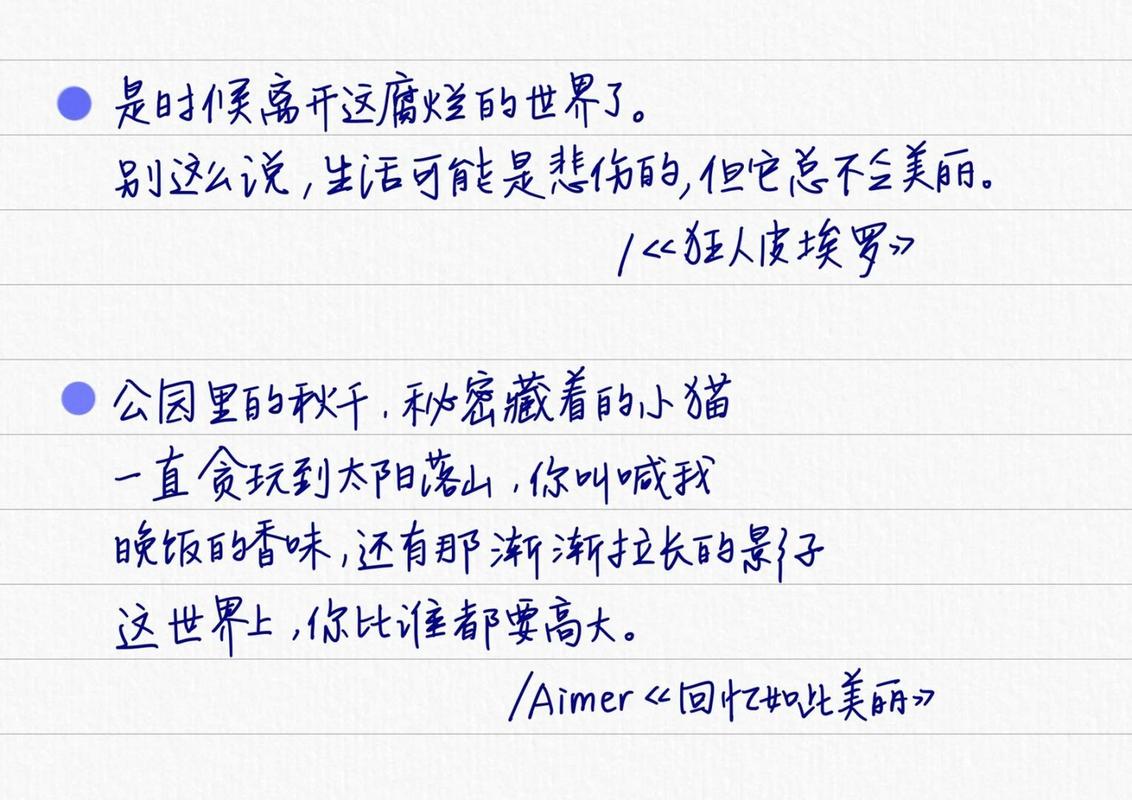 是时候离开这腐烂的世界了。
别这么说,生活可能是悲伤的,但它总不会美丽。
/《狂人皮埃罗》
公园里的秋千,秘密藏着的小猫
一直贪玩到太阳落山,你叫喊我
晚饭的香味,还有那渐渐拉长的影子
这世界上,你比谁都要高大。
/Aimer《回忆如此美丽》